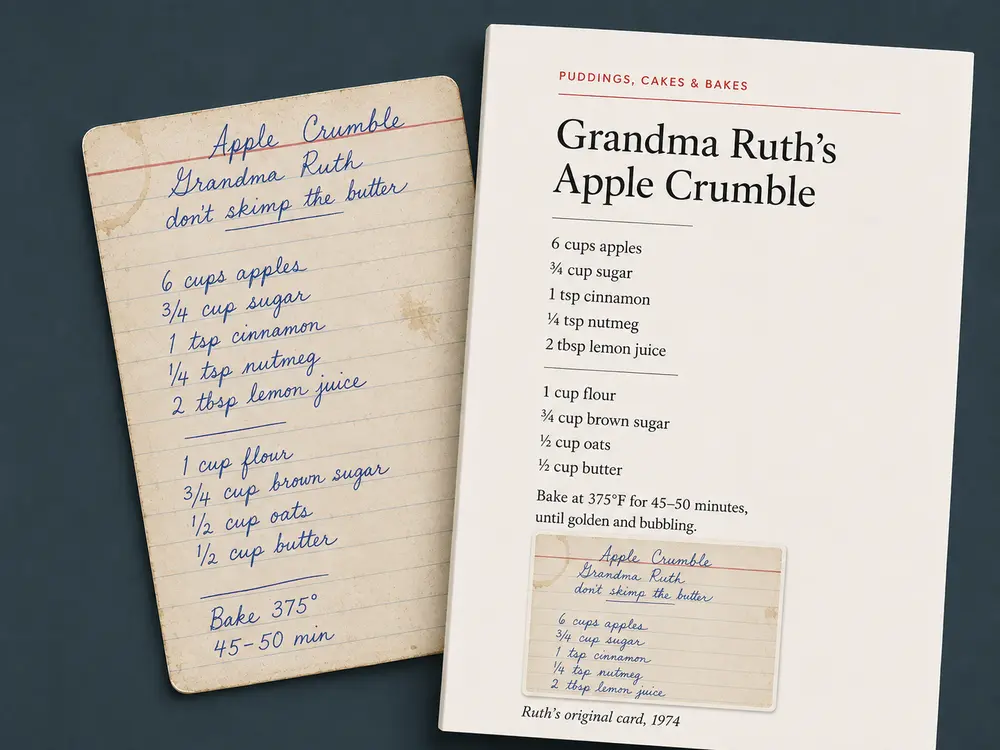 Apple Crumble
Grandma Ruth
don't skimp the butter
6 cups apples
3/4 cup sugar
1 tsp cinnamon
1/4 tsp nutmeg
2 tbsp lemon juice
1 cup flour
3/4 cup brown sugar
1/2 cup oats
1/2 cup butter
Bake 375°
45-50 min
PUDDINGS, CAKES & BAKES
Grandma Ruth's
Apple Crumble
6 cups apples
¾ cup sugar
1 tsp cinnamon
¼ tsp nutmeg
2 tbsp lemon juice
1 cup flour
¾ cup brown sugar
½ cup oats
½ cup butter
Bake at 375°F for 45–50 minutes,
until golden and bubbling.
Apple Crumble
Grandma Ruth
don't skimp the butter
6 cups apples
3/4 cup sugar
1 tsp cinnamon
1/4 tsp nutmeg
2 tbsp lemon juice
Ruth's original card, 1974